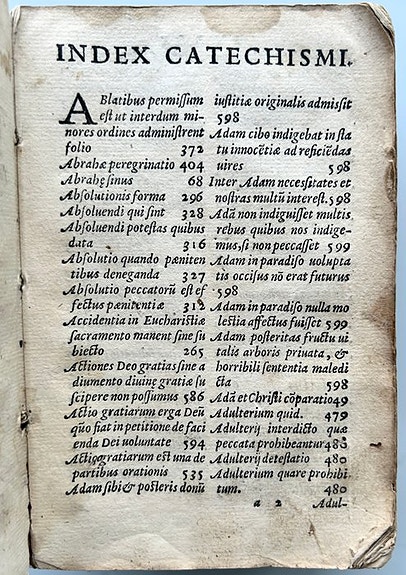 INDEX CATECHISMI.
ABlatibus permiſſum
eſt ut interdum mi-
nores ordines adminiſtrent
folio 372
Abrahæ peregrinatio 404
Abrahę ſinus 68
Abſolutionis forma 296
Abſoluendi qui ſint 328
Abſoluendi poteſtas quibus
data 316
Abſolutio quando pæniten
tibus deneganda 327
Abſolutio peccatorũ eſt ef
fectus pænitentiæ 312
Accidentia in Euchariſtiæ
ſacramento manent ſine ſu
biecto 265
Actiones Deo gratias ſine a
diumento diuinę gratiæ ſu
ſcipere non poſſumus 586
Actio gratiarum erga Deũ
quo fiat in petitione de faci
enda Dei uoluntate 594
Actio gratiarum eſt una de
partibus orationis 535
Adam ſibi & poſteris donũ
iuſtitiæ originalis admiſit
598
Adam cibo indigebat in ſta
tu innocētiæ ad reficiēdas
uires 598
Inter Adam neceſſitates et
noſtras multũ intereſt. 598
Adã non indiguiſſet multis
rebus quibus nos indige-
mus, ſi non peccaſſet 599
Adam in paradiſo uolupta
tis occiſus nō erat futurus
598
Adam in paradiſo nulla mo
leſtia affectus fuiſſet 599
Adam poſteritas fructu ui
talis arboris priuata, &
horribili ſententia maledi
cta 598
Adã et Chriſti cōparatio 49
Adulterium quid. 479
Adulterij interdicto quæ
peccata prohibeantur 483
Adulterij deteſtatio 480
Adulterium quare prohibi
tum. 480
a 2 Adul-